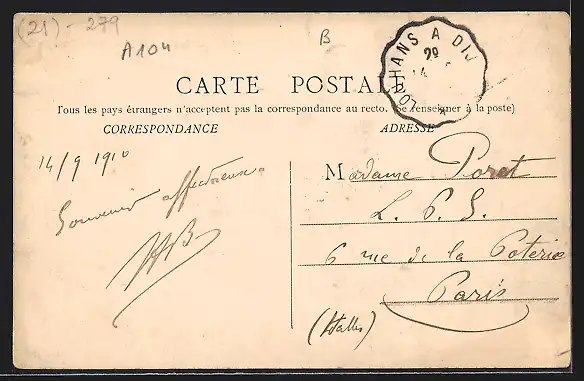 (21) - 279
A104
B
LOUHANS A DIJ
29
14
CARTE POSTALE
Tous les pays étrangers n'acceptent pas la correspondance au recto. (Se renseigner à la poste)
CORRESPONDANCE
ADRESSE
14/9 1910
Souvenir affectueux.
HB
Madame Poret
L. P. S.
6 rue de la Poterie
Paris
(Halles)